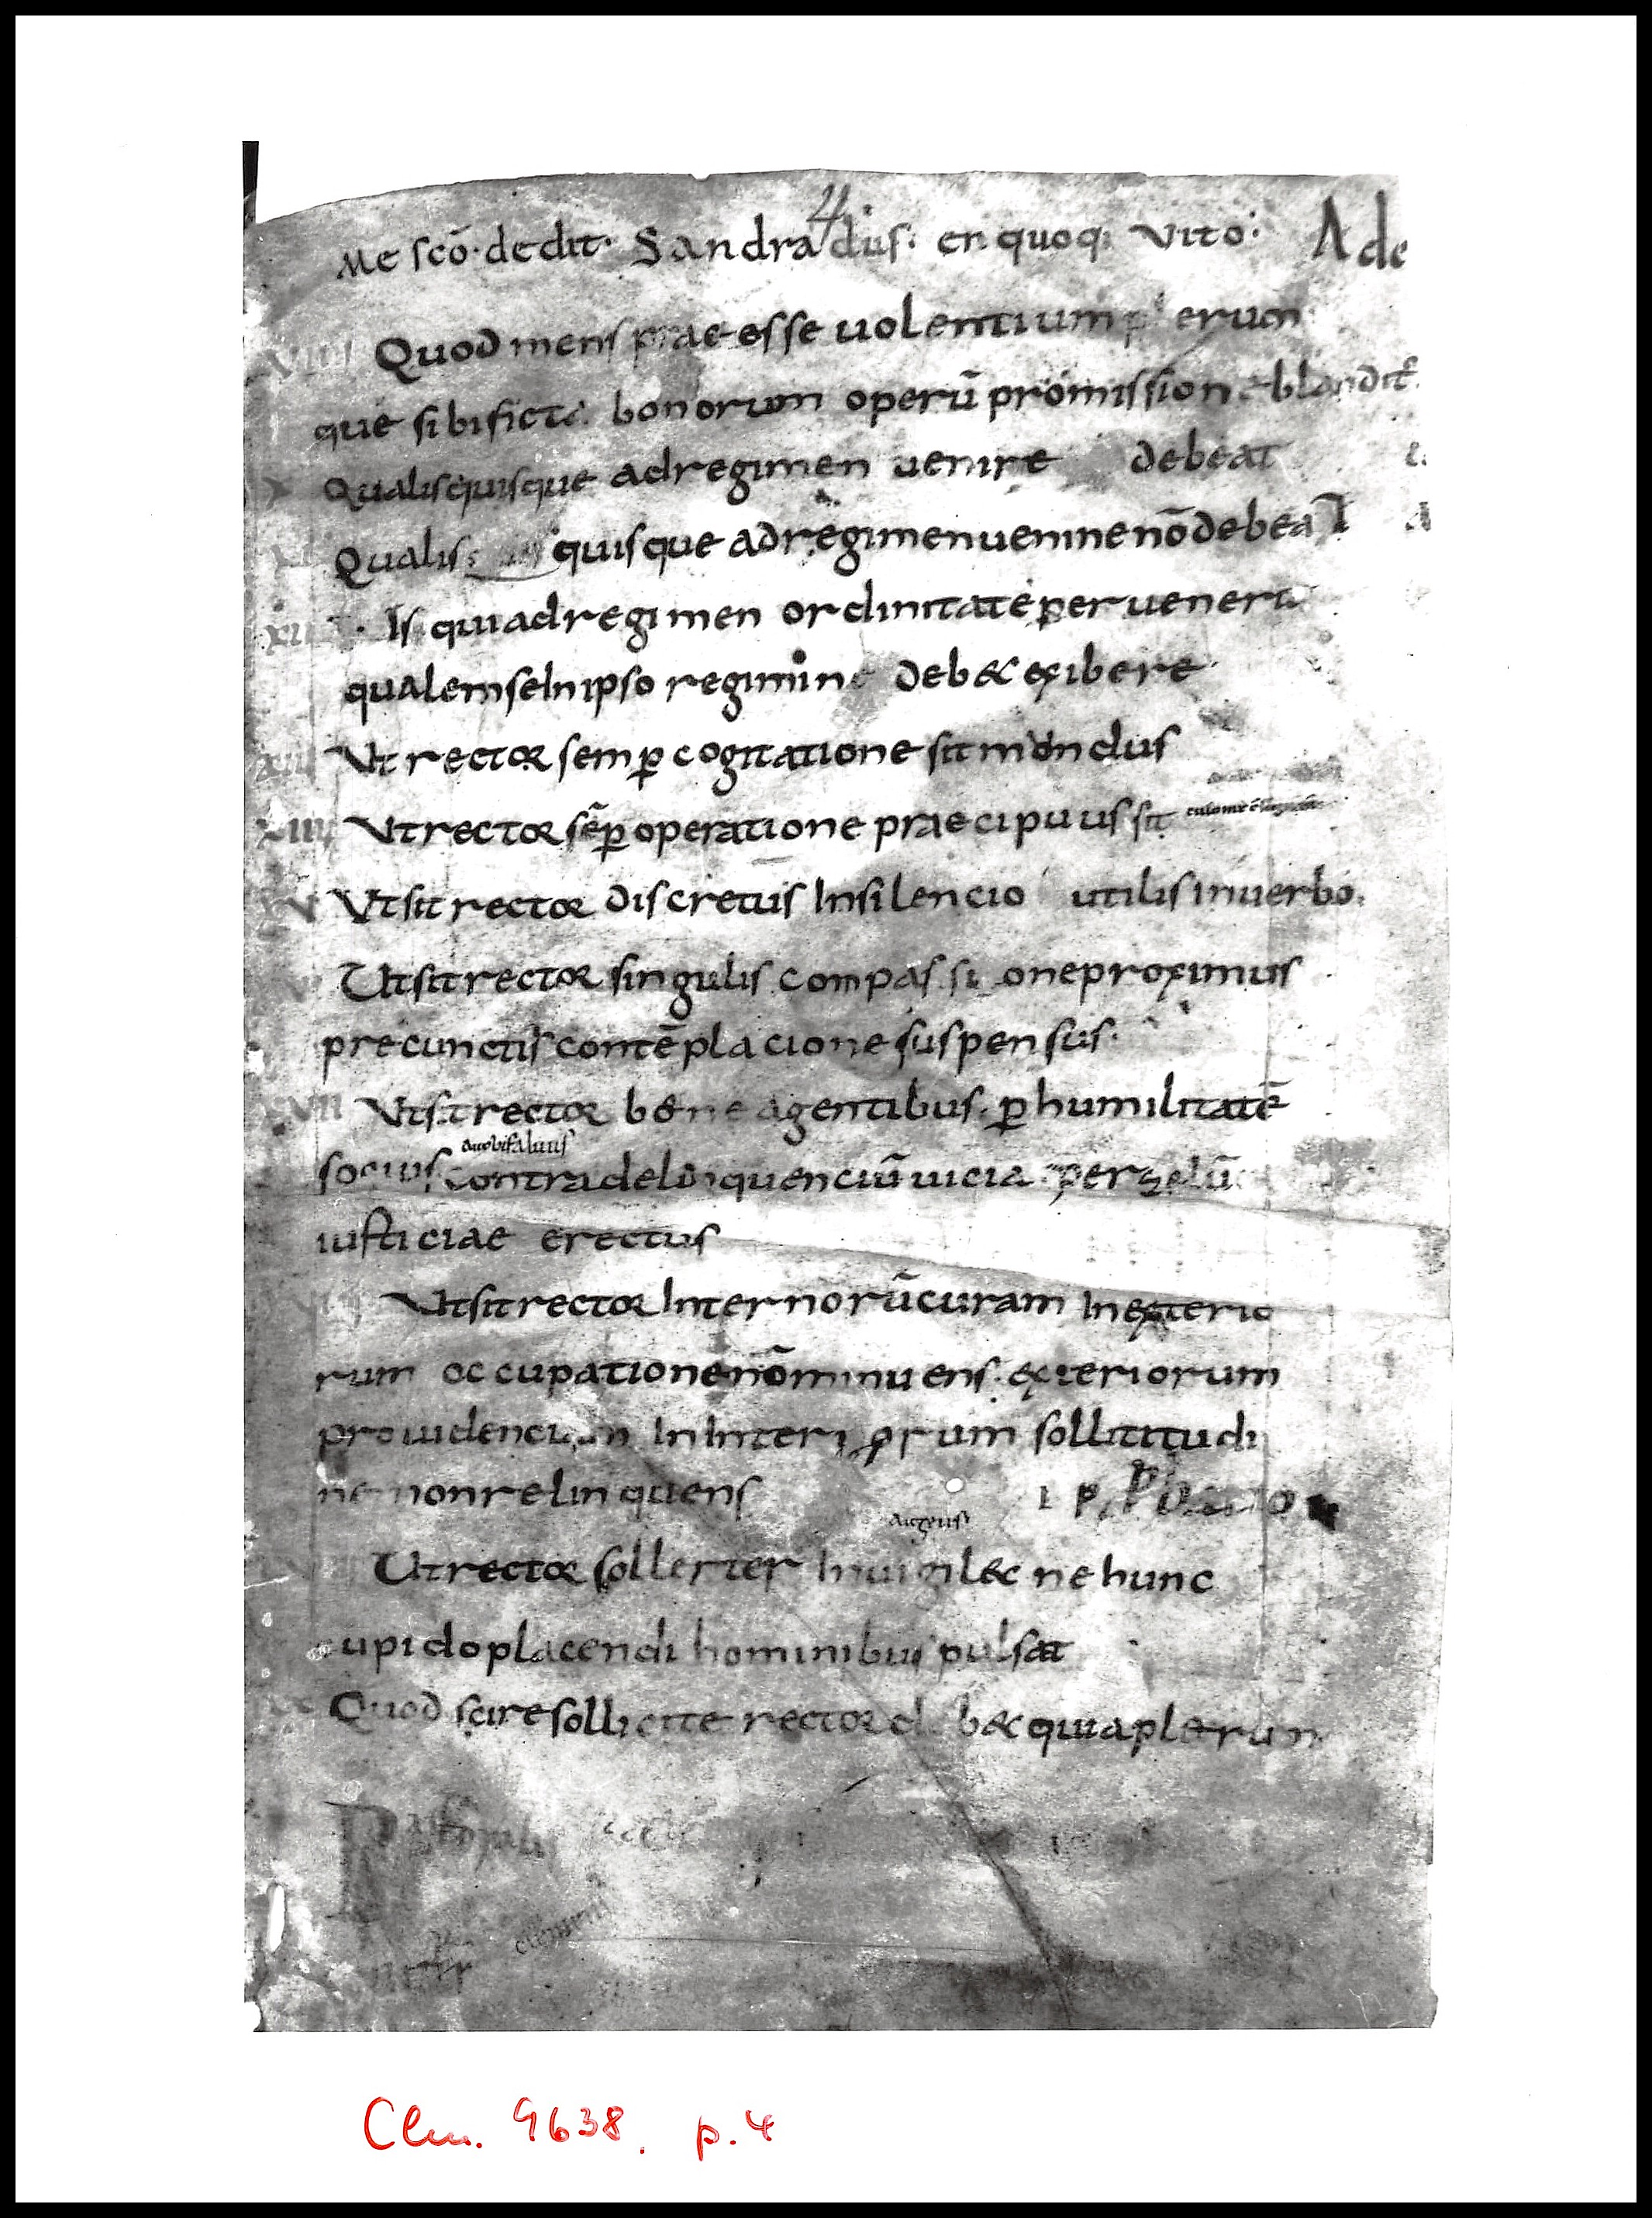 4
Me scō· dedit· Sandradus· en quoq; Vito· Ade
VIIII Quod mens prae esse uolentium plerum
que sibi ficta bonorum operū promissione blandit̄
Qualis quisque ad regimen uenire debeat
Qualis quisque ad regimen uenire nō debeat
XII Is qui ad regimen ordinitate peruenerit
qualem se In ipso regimine deb& exibere
XIII Vt rector semp cogitatione sit mondus
XIIII Vt rector sēp operatione praecipuus sit
XV Vt sit rector discretus In silencio utilis in uerbo.
Vt sit rector singulis compassi one proximus
pre cunctis contēplacione suspensus.
XVII Vt sit rector bene agentibus· p humilitatē
socius contra delinquenciū uicia per zelū
iusticiae erectus
Vt sit rector Internorū curam In exterio
rum occupatione nō minuens· exteriorum
prouidenciam In Interiorum sollititudi
ne non relinquens
Vt rector sollerter Inuigil& ne hunc
cupido placendi hominibus pulsat
Quod scire sollicite rector deb& quia plerum
Clm. 9638. p. 4